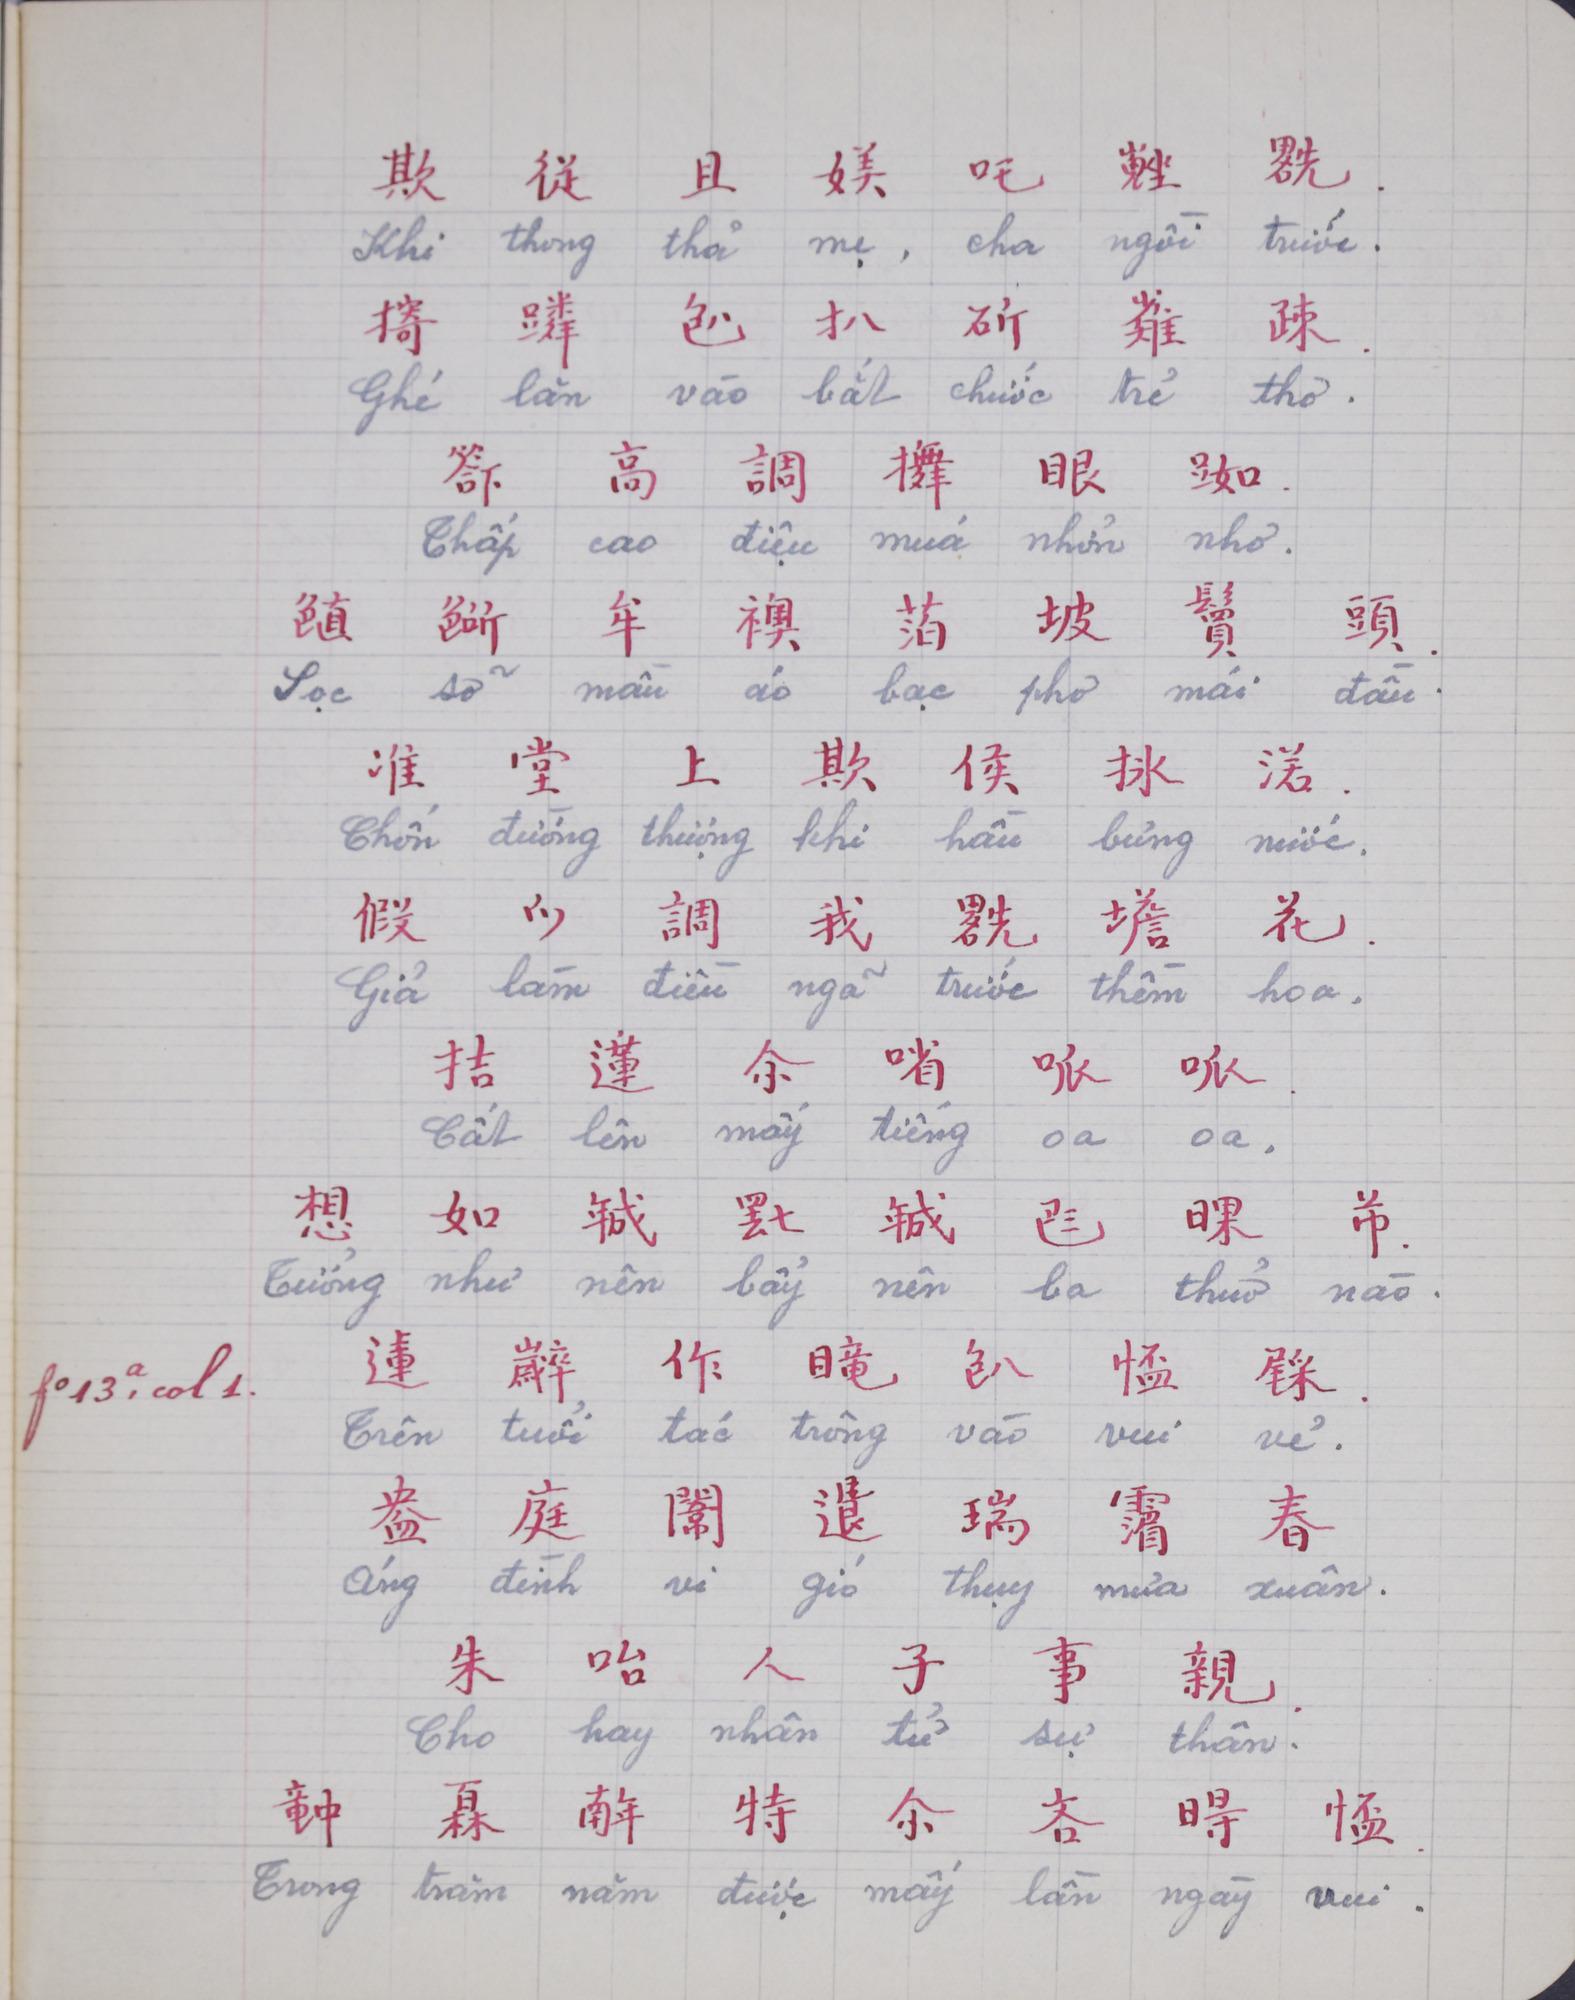 欺 從 且 媄 吒 𡎥 𠓀.
Khi thong thả mẹ, cha ngồi trước.
𢭮 蹸 𠓨 扒 斫 𥘷 疎.
Ghé lăn vào bắt chước trẻ thơ.
高 調 𢱖 眼 𨀎.
Thấp cao điệu múa nhởn nhơ.
牟 襖 萡 坡 𩯀 頭.
Sọc sỡ mầu áo bạc phơ mái đầu.
准 堂 上 欺 侯 𢫚 渃.
Chốn đường thượng khi hầu bưng nước.
假 𪜀 調 我 𠓀 𡍞 花.
Giả làm điều ngã trước thềm hoa.
拮 𨖲 余 㗂 呱 呱.
Cất lên mấy tiếng oa oa.
想 如 𢧚 𦉱 𢧚 𠀧 𣋻 芇.
Tưởng như nên bẩy nên ba thuở nào.
f° 13ᵃ, col 1.
𨕭 𢆫 作 𥊢 𠓨 𢝙 𨤔.
Trên tuổi tác trông vào vui vẻ.
盎 庭 闈 𩙍 瑞 𩅹 春
Áng đình vi gió thụy mưa xuân.
朱 咍 人 子 事 親.
Cho hay nhân tử sự thân.
𥪝 𤾓 𢆥 特 余 吝 𣈜 𢝙.
Trong trăm năm được mấy lần ngày vui.